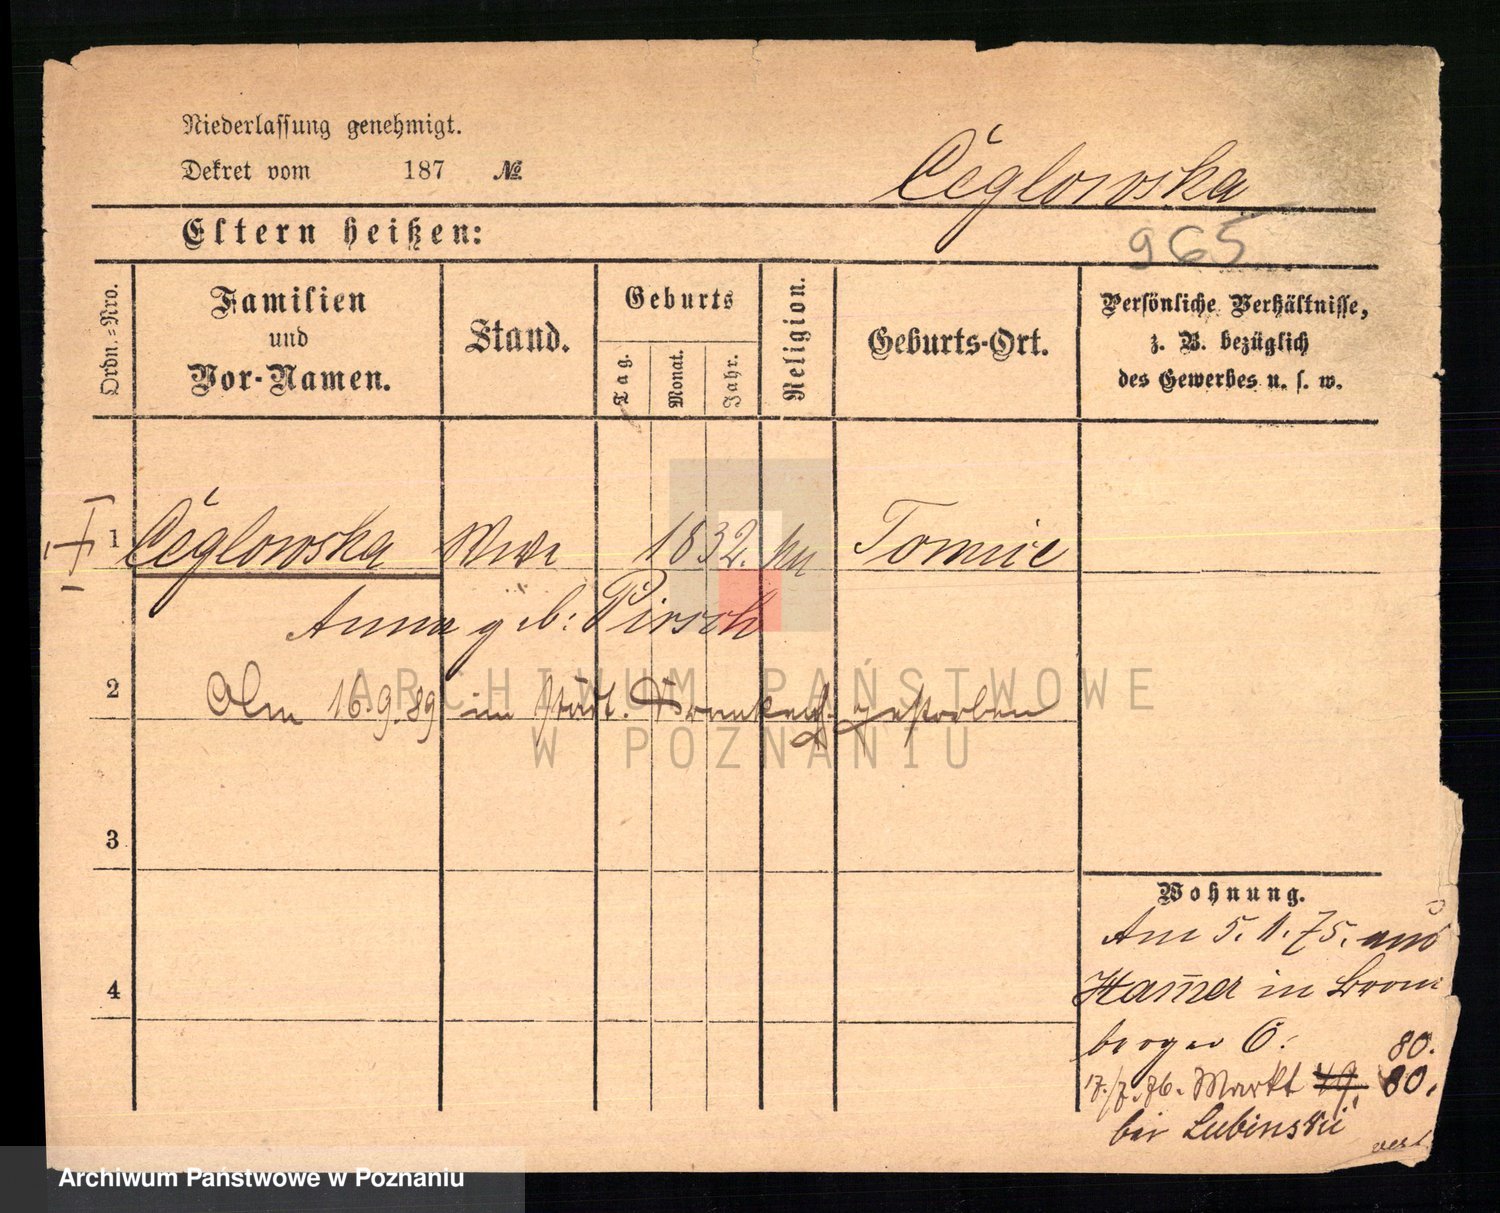 Niederlassung genehmigt.
Dekret vom 187 №
Ceglowska
Eltern heißen:
965
Ordn.-Nro.
Familien und Vor-Namen.
Stand.
Geburts
Tag.
Monat.
Jahr.
Religion.
Geburts-Ort.
Persönliche Verhältnisse,
z. B. bezüglich
des Gewerbes u. s. w.
1 Ceglowska Wwe 1832. Tomice
Anna geb: Pirsch
2 Am 16.9.89 im städt. gestorben
3
4
Wohnung.
Am 5.1.75. aus
Hamer in Brom
berger 6. 80.
17./7.76. Markt 49. 80.
bei Lubinski
ARCHIWUM PAŃSTWOWE
W POZNANIU
Archiwum Państwowe w Poznaniu